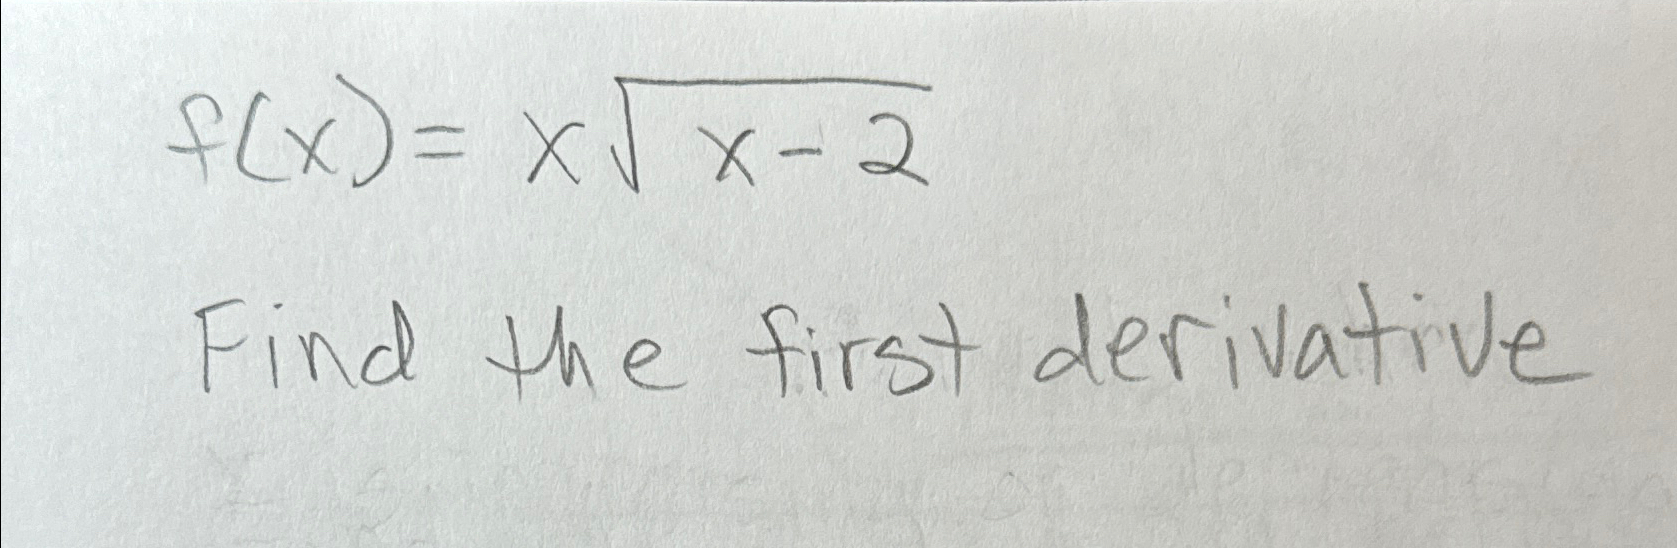 f(x) = x√x-2
Find the first derivative